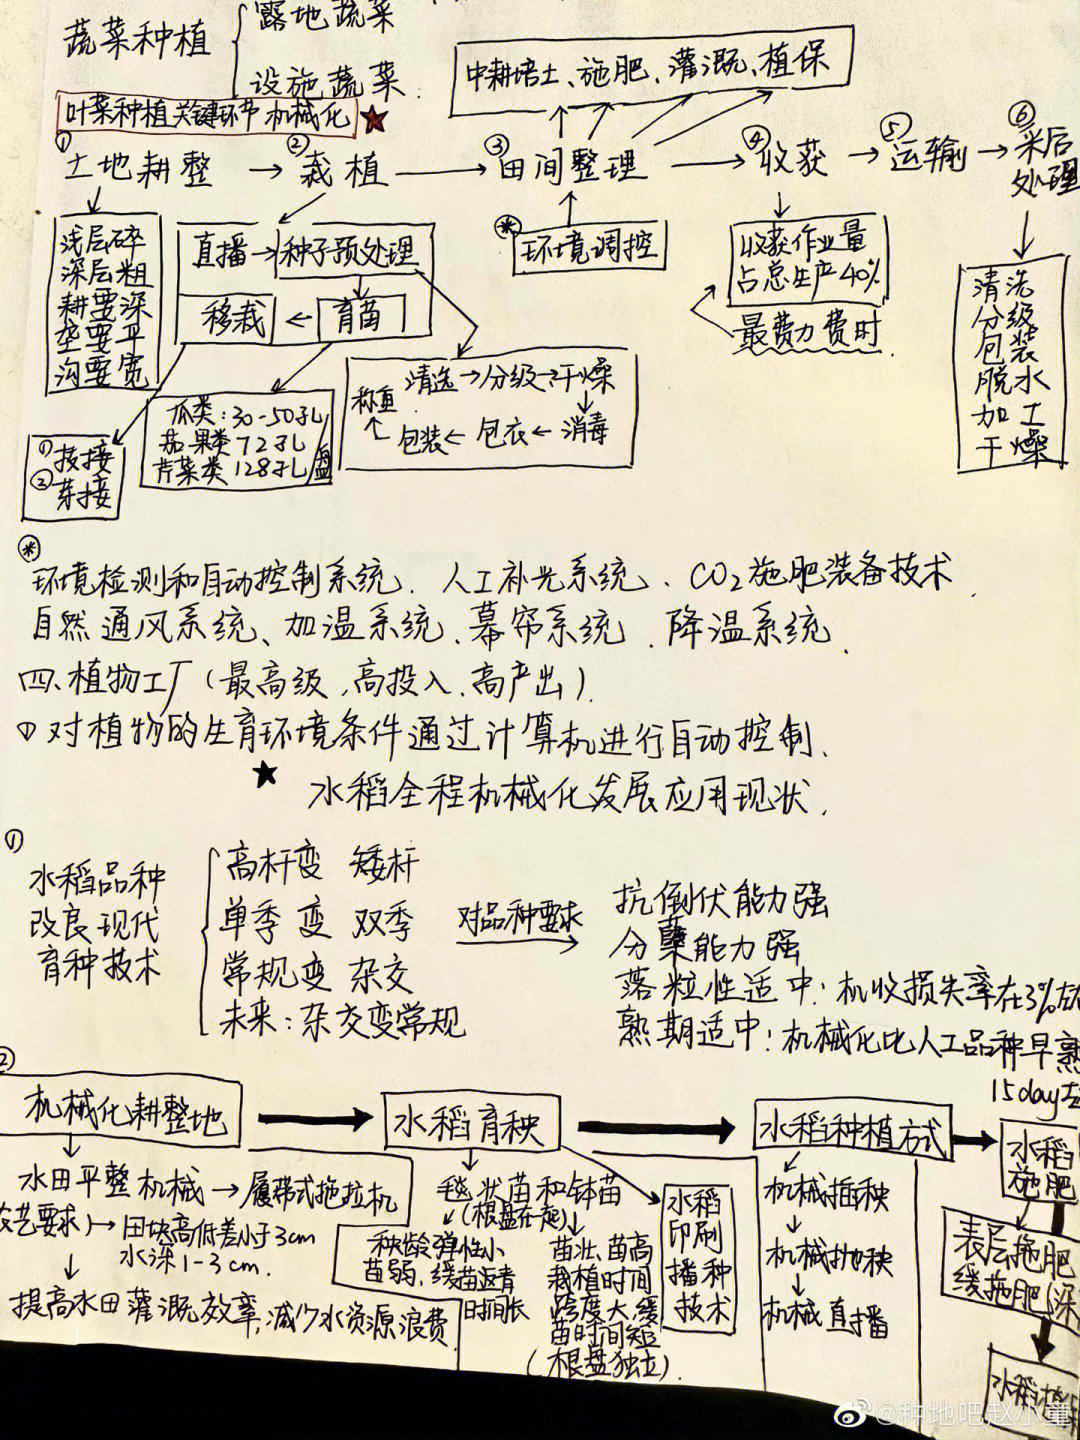 蔬菜种植
露地蔬菜
设施蔬菜
叶菜种植关键环节机械化 ★
① 土地耕整 → ② 栽植 → ③ 田间整理 → ④ 收获 → ⑤ 运输 → ⑥ 采后处理
中耕培土、施肥、灌溉、植保
浅层碎
深层粗
耕要深
垄要平
沟要宽
直播→种子预处理
移栽 ← 育苗
※ 环境调控
收获作业量
占总生产40%
最费力费时
清洗
分级
包装
脱水
加工
干燥
清选→分级→干燥
称重 包装←包衣←消毒
瓜类:30-50孔
茄果类72孔
芹菜类128孔/盘
①技接
②芽接
※
环境检测和自动控制系统、人工补光系统、CO2施肥装备技术
自然通风系统、加温系统、幕帘系统、降温系统
四、植物工厂(最高级,高投入、高产出)
① 对植物的生育环境条件通过计算机进行自动控制、
★ 水稻全程机械化发展应用现状.
①
水稻品种
改良现代
育种技术
高杆变 矮杆
单季变 双季
常规变 杂交
未来:杂交变常规
对品种要求
抗倒伏能力强
分蘖能力强
落粒性适中:机收损失率在3%左
熟期适中:机械化比人工品种早熟
15day左
②
机械化耕整地 水稻育秧 水稻种植方式 水稻施肥
水田平整机械→履带式拖拉机
艺要求)→田块高低差小于3cm
水深1-3cm.
提高水田灌溉效率,减少水资源浪费
毯状苗和钵苗
(根盘在一起)
秧龄弹性小
苗弱,缓苗返青
时间长
苗壮、苗高
栽植时间
跨度大,缓
苗时间短
(根盘独立).
水稻
印刷
播种
技术
机械插秧
机械抛秧
机械直播
表层施肥
缓施肥 深
水稻
@种地吧赵小童